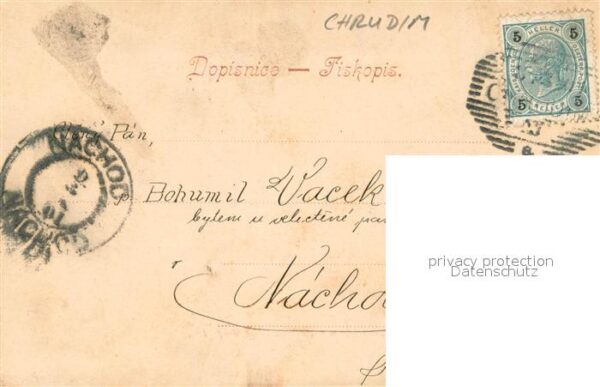 CHRUDIM
5 HELLER 5
5 HELLER 5
Dopisnice — Tiskopis.
Pán,
NÁCHOD
NÁCHOD
Bohumil Vacek
bytem u velectěné
privacy protection
Datenschutz
v
Nácho